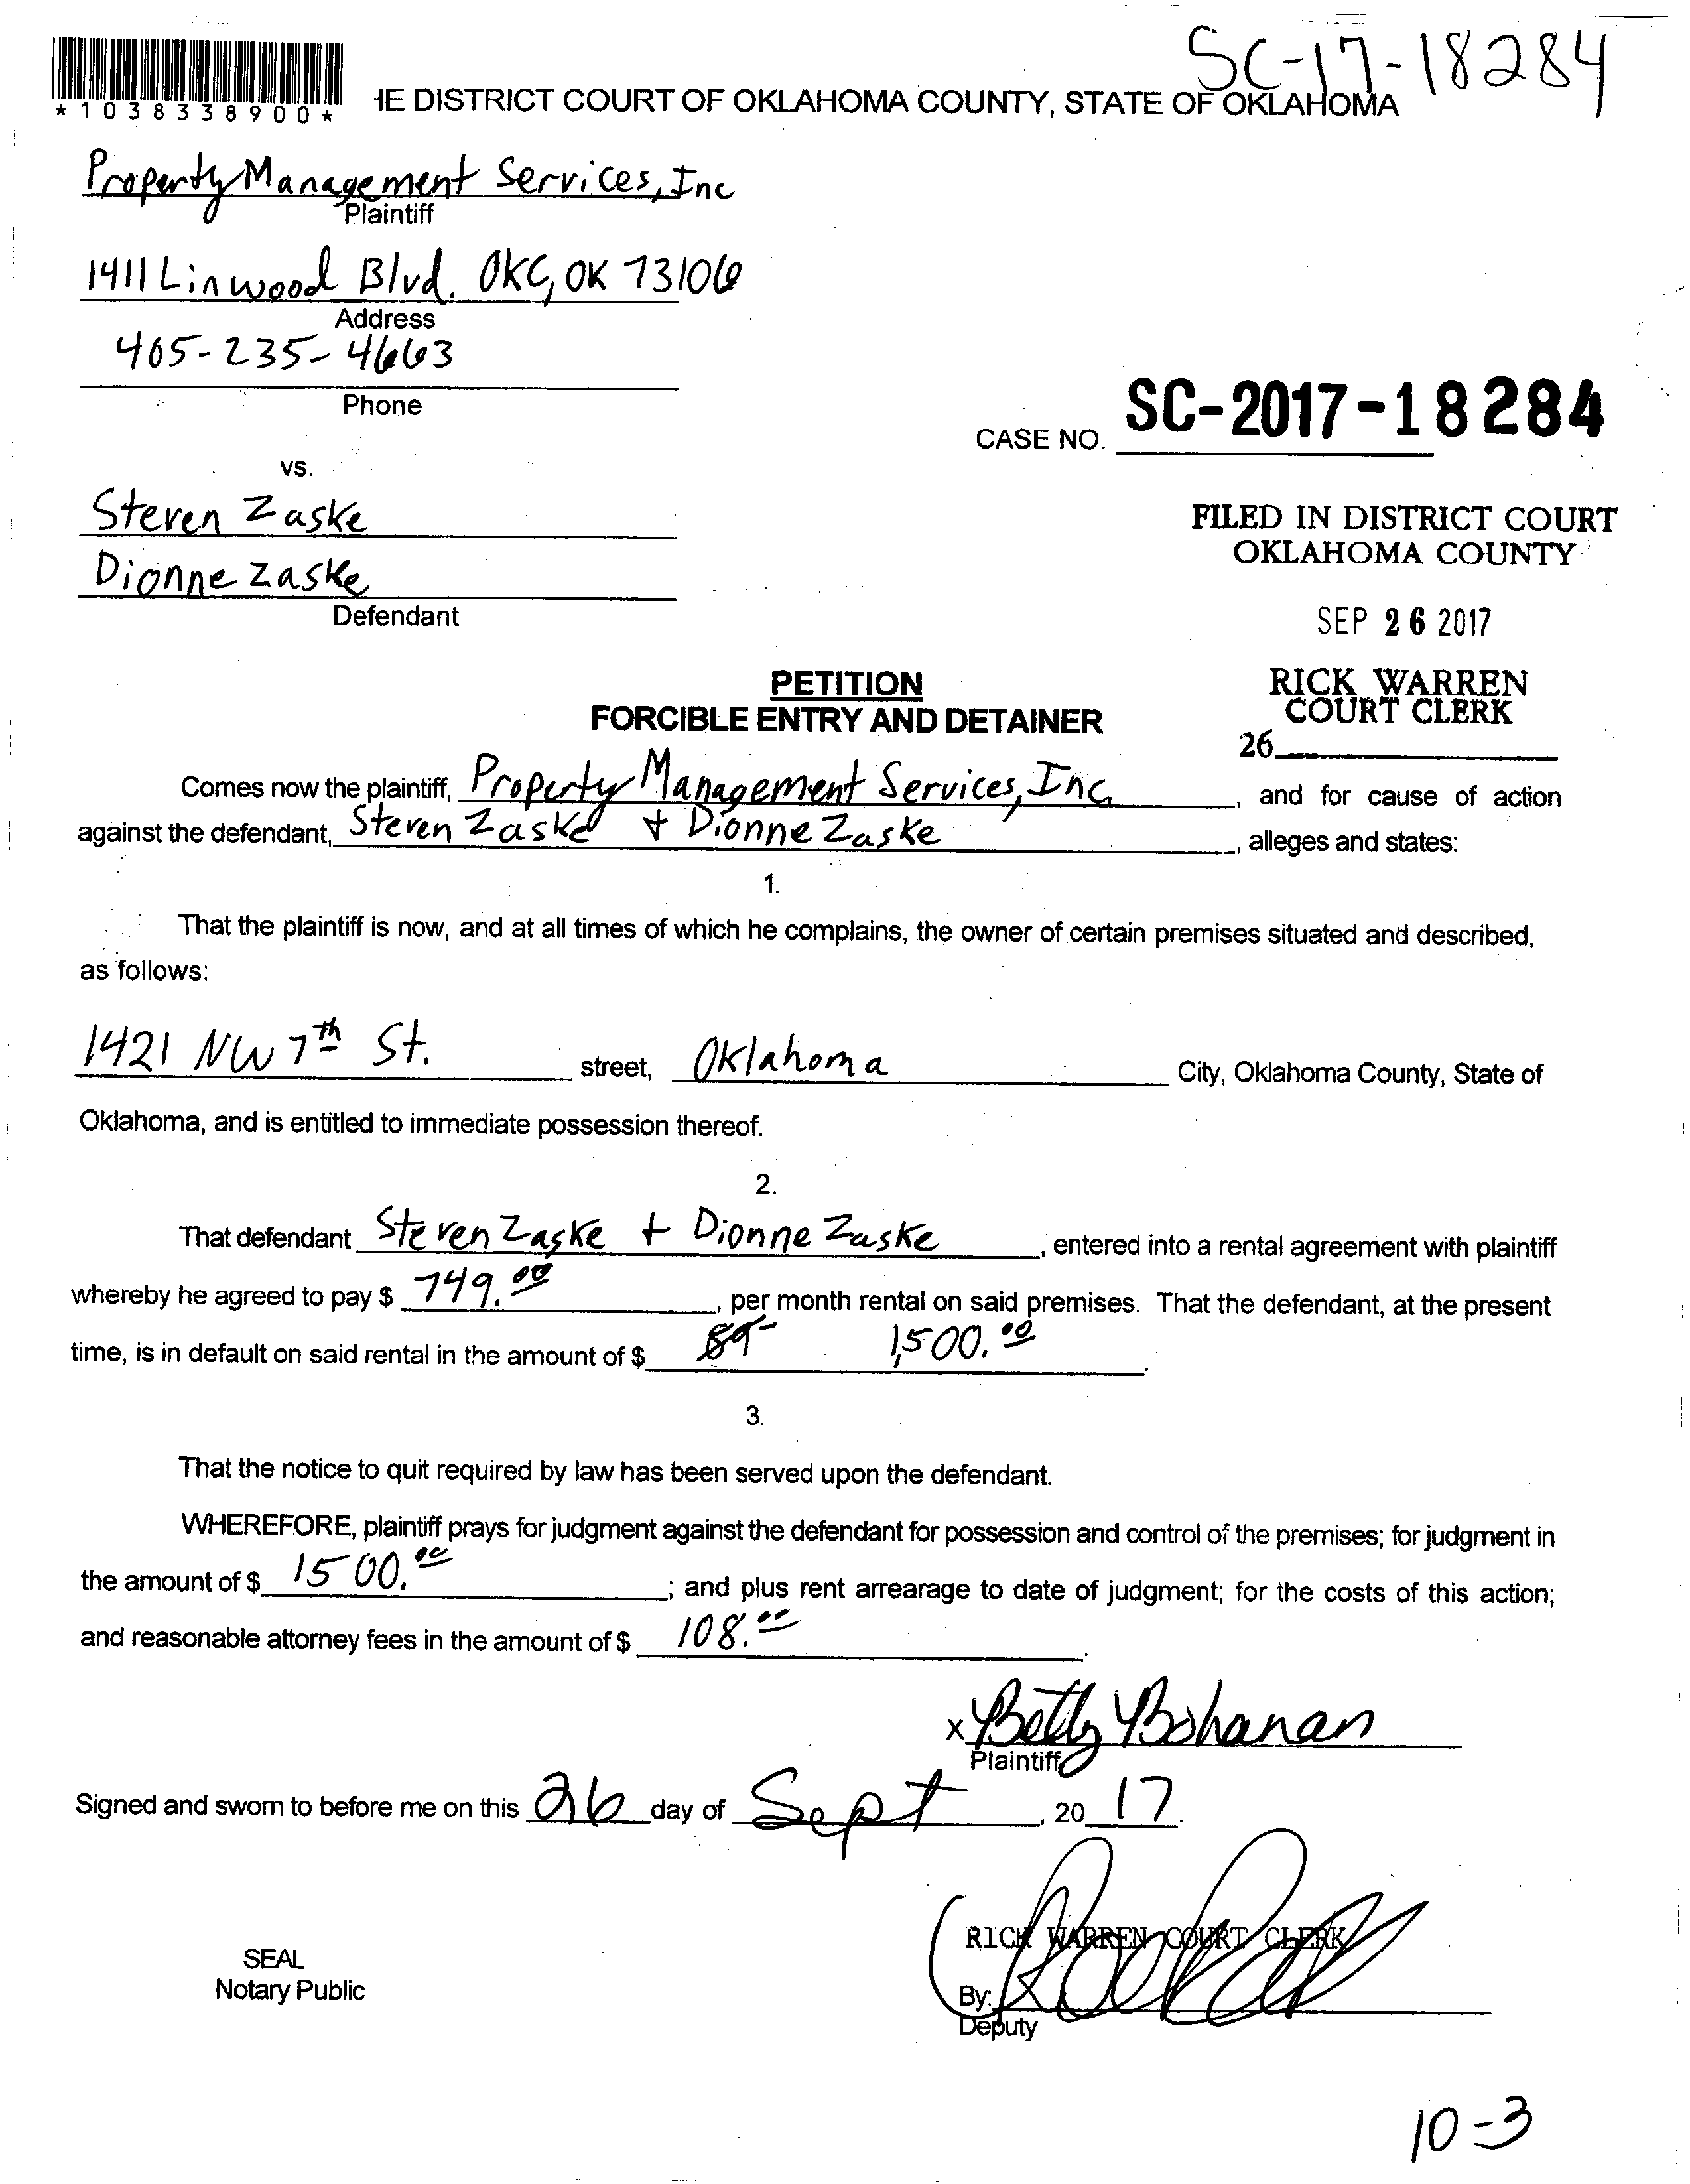 SC-17-18284
*1038338900*
HE DISTRICT COURT OF OKLAHOMA COUNTY, STATE OF OKLAHOMA
Property Management Services, Inc
Plaintiff
1411 Linwood Blvd. OKC, OK 73106
Address
405-235-4663
Phone
CASE NO. SC-2017-18284
vs.
Steven Zaske
Dionne Zaske
Defendant
FILED IN DISTRICT COURT
OKLAHOMA COUNTY
SEP 26 2017
RICK WARREN
COURT CLERK
26
PETITION
FORCIBLE ENTRY AND DETAINER
Comes now the plaintiff, Property Management Services, Inc. , and for cause of action
against the defendant, Steven Zaske + Dionne Zaske , alleges and states:
1.
That the plaintiff is now, and at all times of which he complains, the owner of certain premises situated and described,
as follows:
1421 NW 7th St. street, Oklahoma City, Oklahoma County, State of
Oklahoma, and is entitled to immediate possession thereof.
2.
That defendant Steven Zaske + Dionne Zaske , entered into a rental agreement with plaintiff
whereby he agreed to pay $ 749.00 , per month rental on said premises. That the defendant, at the present
time, is in default on said rental in the amount of $ 1,500.00 .
3.
That the notice to quit required by law has been served upon the defendant.
WHEREFORE, plaintiff prays for judgment against the defendant for possession and control of the premises; for judgment in
the amount of $ 1500.00 ; and plus rent arrearage to date of judgment; for the costs of this action;
and reasonable attorney fees in the amount of $ 108.00 .
x Betty Bohanan
Plaintiff
Signed and sworn to before me on this 26 day of Sept , 20 17.
RICK WARREN COURT CLERK
SEAL
Notary Public
By:
Deputy
10-3